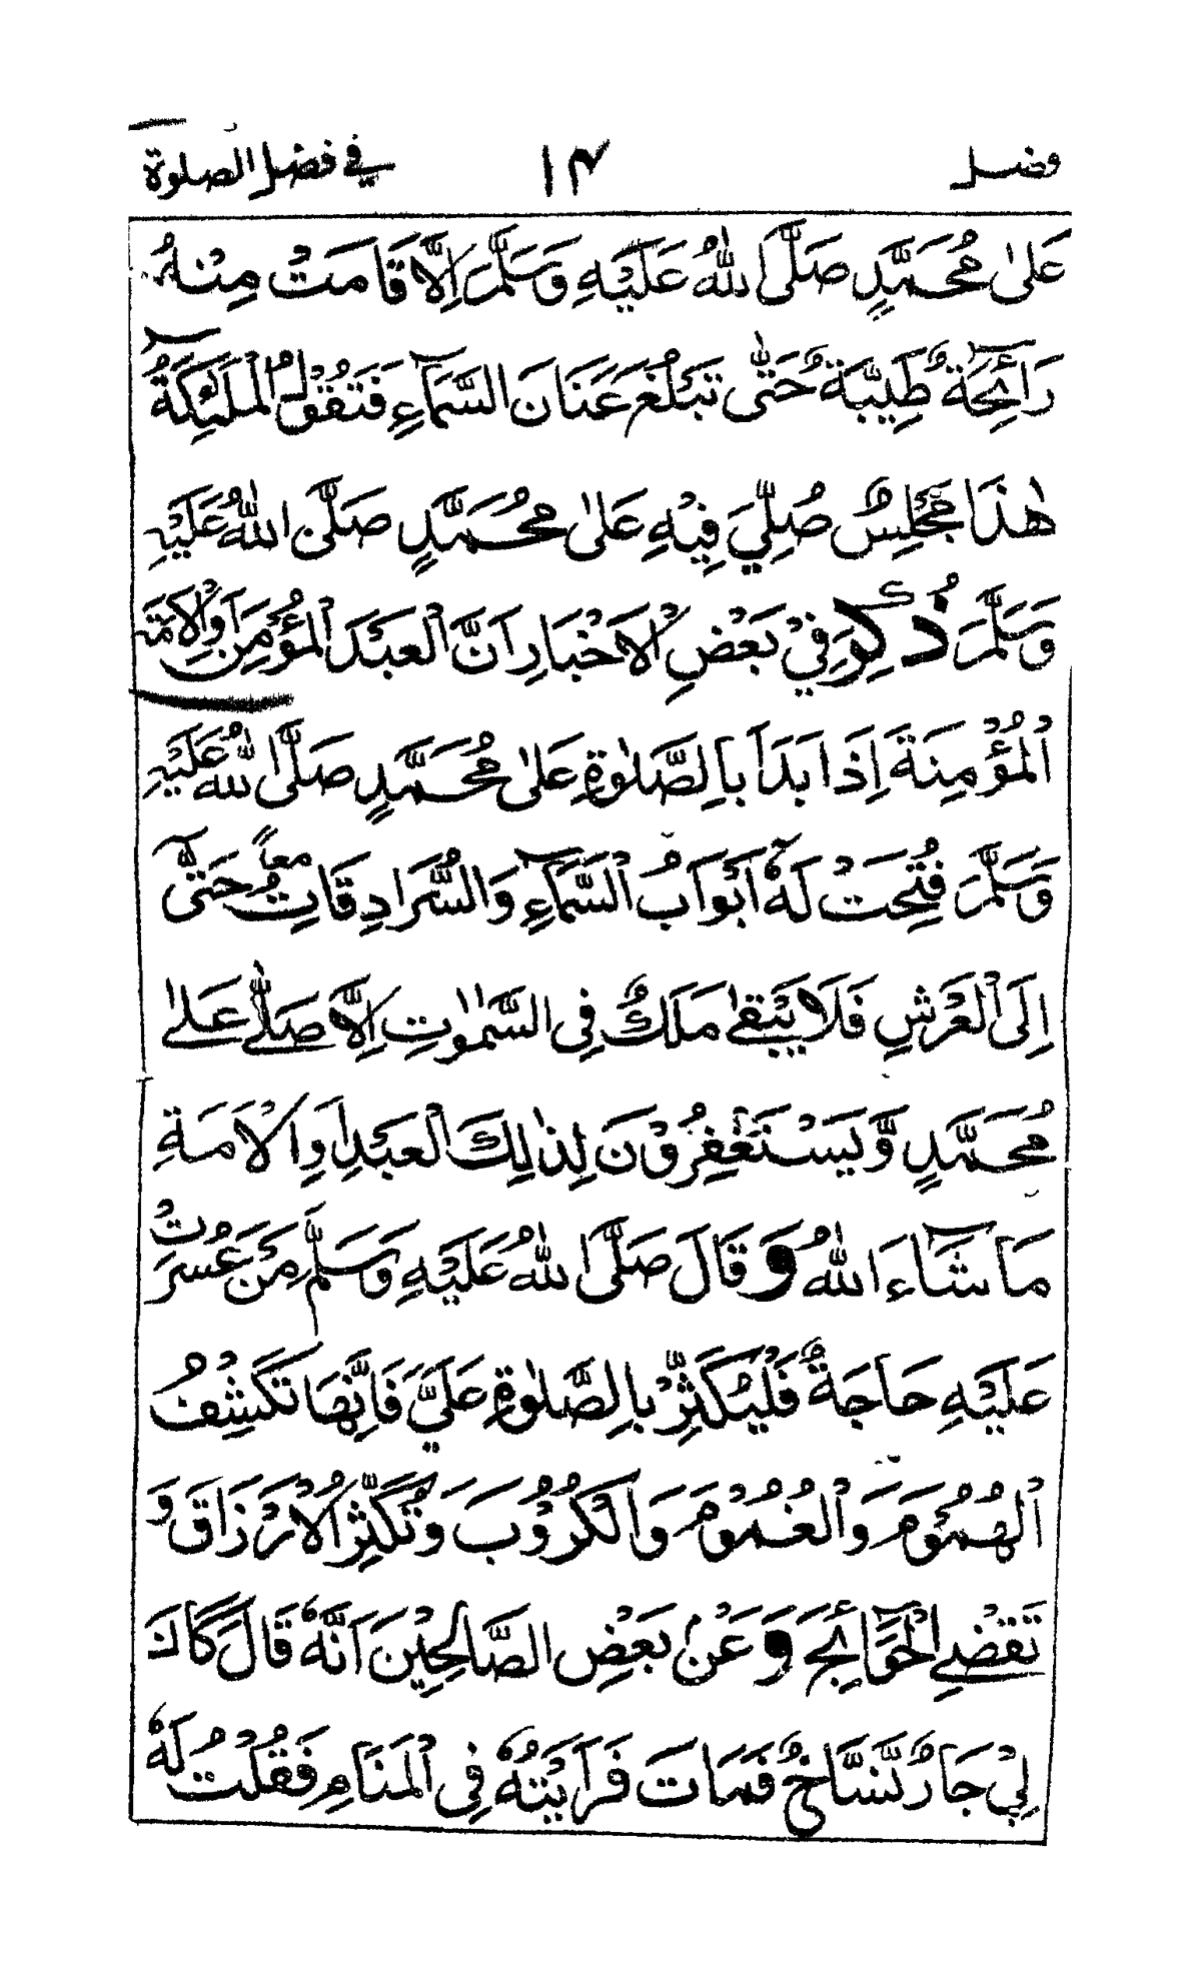 فضل ١٤ في فضل الصلوة
عَلٰى مُحَمَّدٍ صَلَّى اللّٰهُ عَلَيْهِ وَسَلَّمَ اِلَّا قَامَتْ مِنْهُ
رَآئِحَةٌ طَيِّبَةٌ حَتّٰى تَبْلُغَ عَنَانَ السَّمَآءِ فَتَقُوْلُ الْمَلٰٓئِكَةُ
هٰذَا مَجْلِسٌ صُلِّيَ فِيْهِ عَلٰى مُحَمَّدٍ صَلَّى اللّٰهُ عَلَيْهِ
وَسَلَّمَ ذُكِرَ فِيْ بَعْضِ الْاَخْبَارِ اَنَّ الْعَبْدَ الْمُؤْمِنَ اَوِ الْاَمَةَ
الْمُؤْمِنَةَ اِذَا بَدَاَ بِالصَّلٰوةِ عَلٰى مُحَمَّدٍ صَلَّى اللّٰهُ عَلَيْهِ
وَسَلَّمَ فُتِحَتْ لَهٗ اَبْوَابُ السَّمَآءِ وَالسُّرَادِقَاتُِ معاً حَتّٰى
اِلَى الْعَرْشِ فَلَا يَبْقٰى مَلَكٌ فِي السَّمٰوٰتِ اِلَّا صَلّٰى عَلٰى
مُحَمَّدٍ وَّيَسْتَغْفِرُوْنَ لِذٰلِكَ الْعَبْدِ اَوِ الْاَمَةِ
مَا شَآءَ اللّٰهُ وَقَالَ صَلَّى اللّٰهُ عَلَيْهِ وَسَلَّمَ مَنْ عَسُرَتْ
عَلَيْهِ حَاجَةٌ فَلْيُكْثِرْ بِالصَّلٰوةِ عَلَيَّ فَاِنَّهَا تَكْشِفُ
الْهُمُوْمَ وَالْغُمُوْمَ وَالْكُرُوْبَ وَتُكَثِّرُ الْاَرْزَاقَ وَ
تَقْضِي الْحَوَآئِجَ وَعَنْ بَعْضِ الصَّالِحِيْنَ اَنَّهٗ قَالَ كَانَ
لِيْ جَارٌ نَسَّاخٌ فَمَاتَ فَرَاَيْتُهٗ فِي الْمَنَامِ فَقُلْتُ لَهٗ